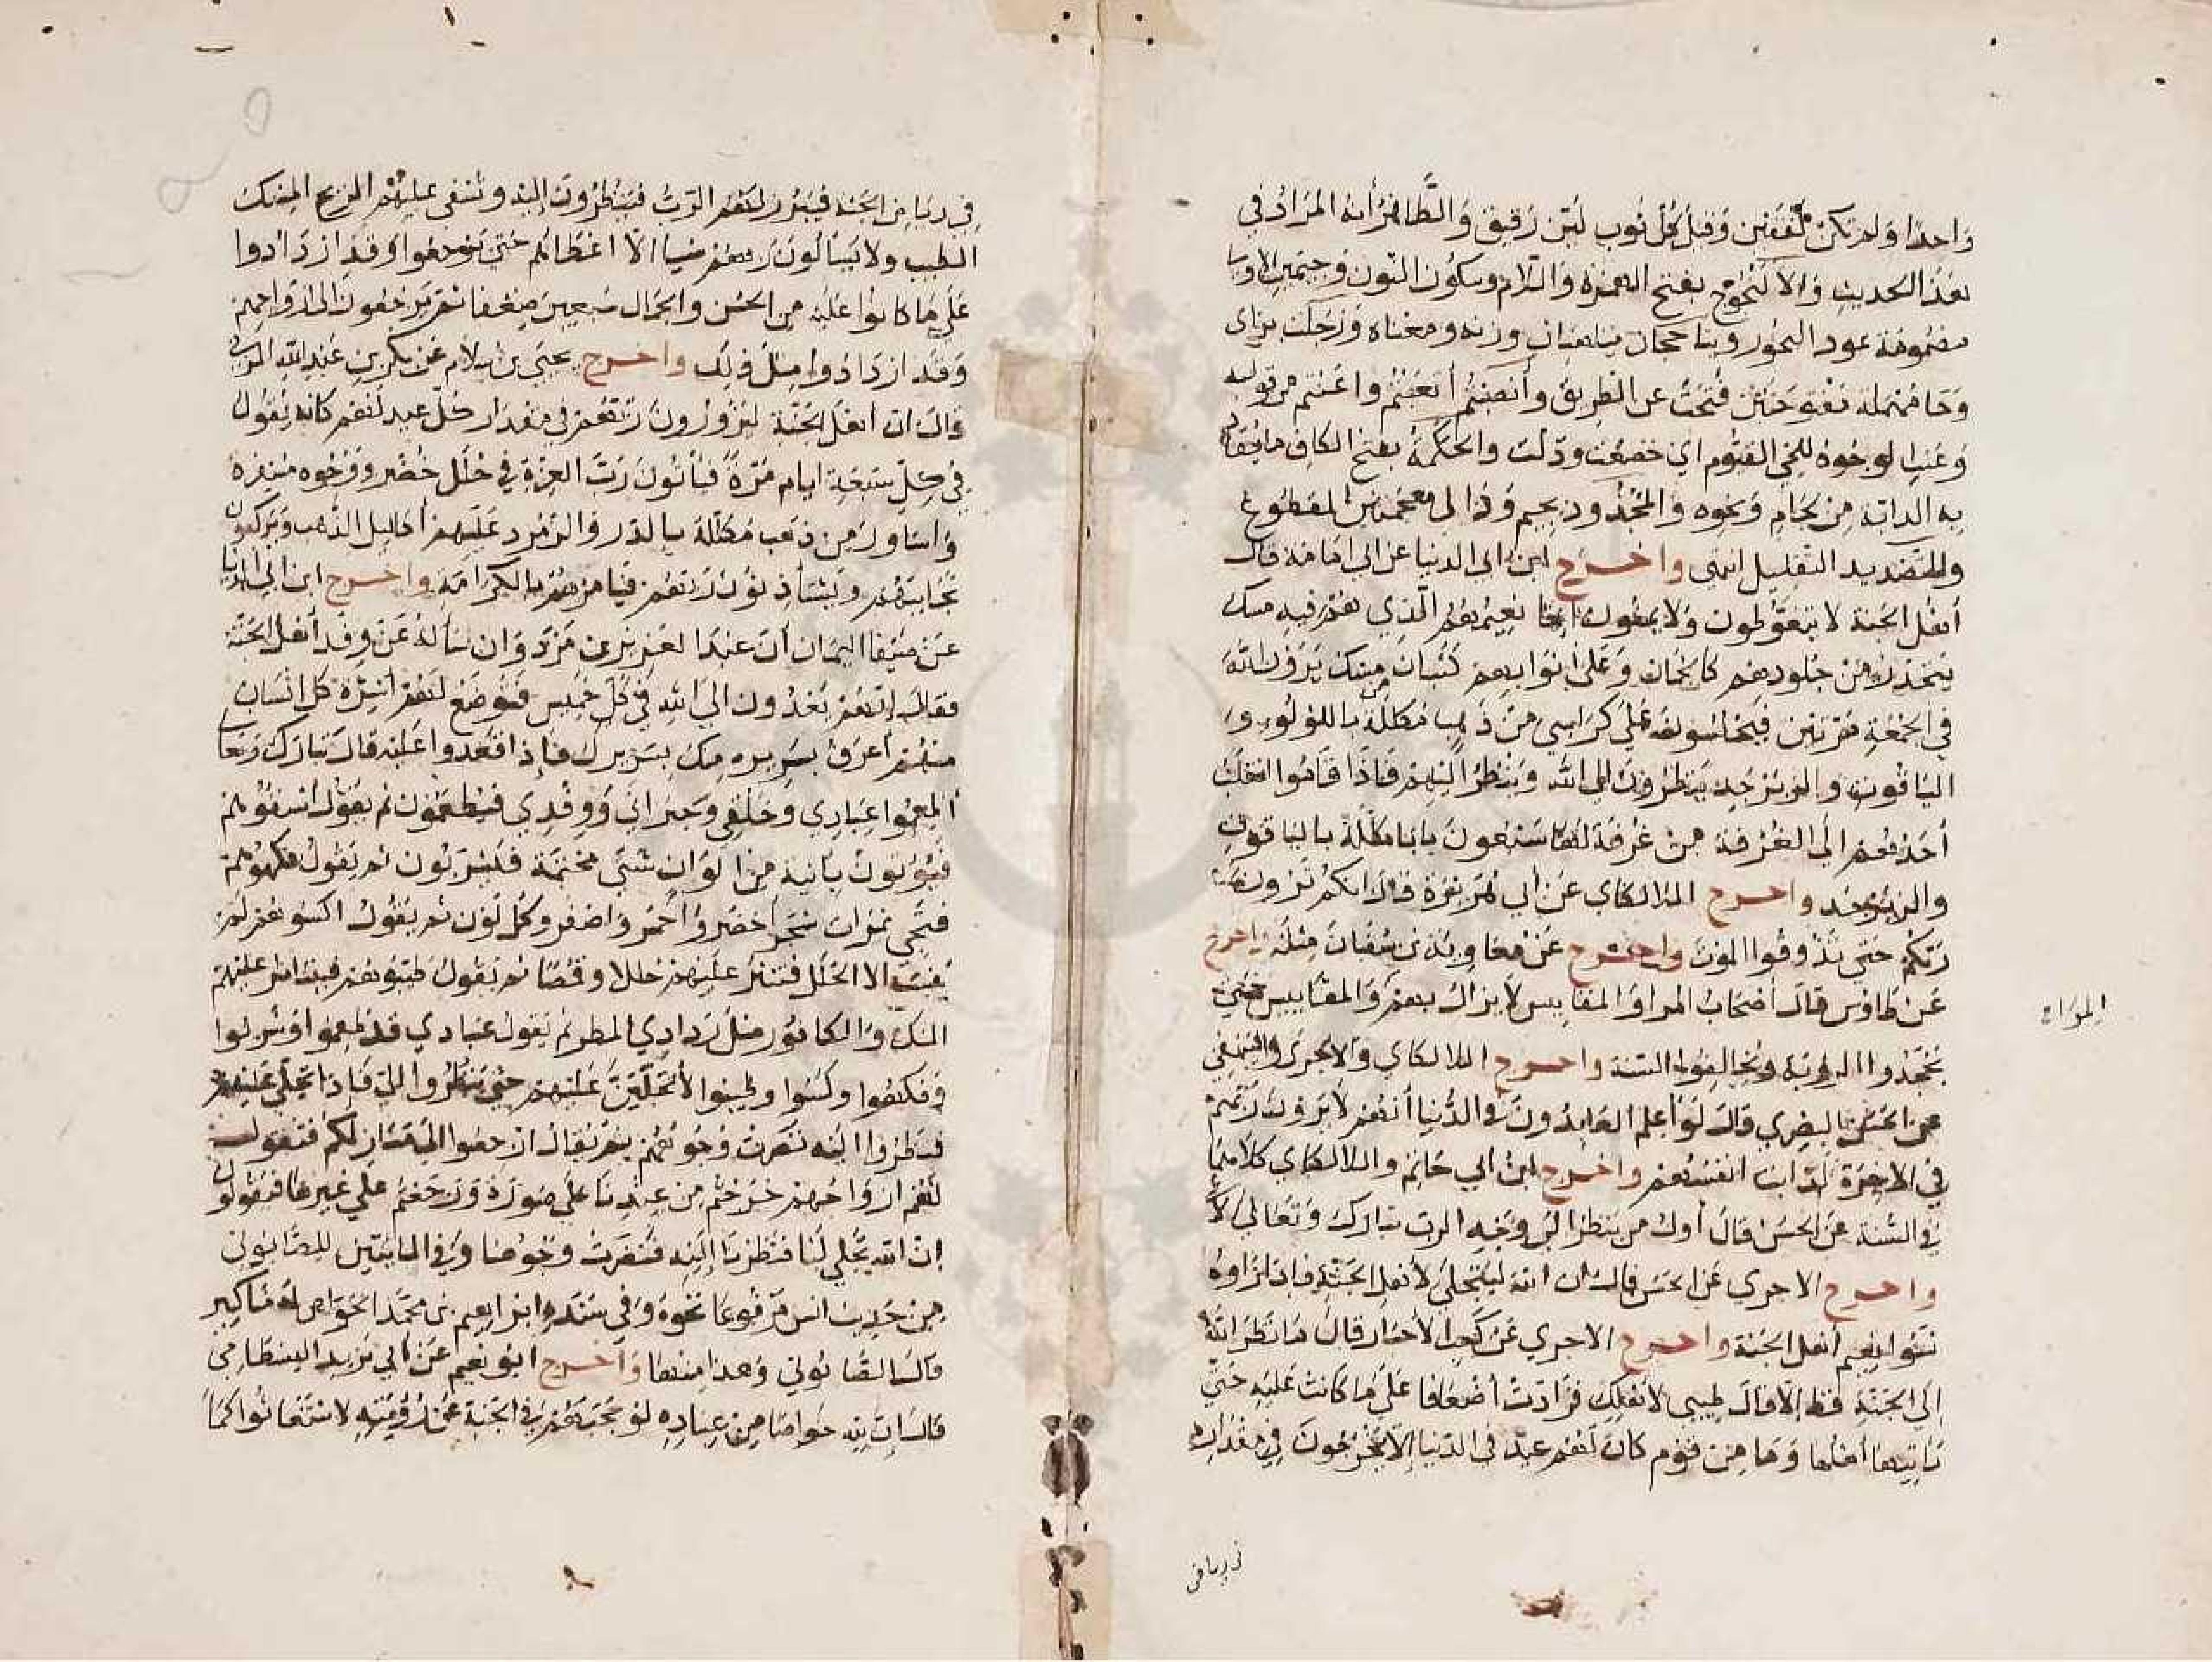 واحدا ولم تكن لفقين وقيل كل ثوب لين رقيق والظاهر أنه المراد في
هذا الحديث والألنجوج بفتح الهمزة واللام وسكون النون وجيمين الأولى
مضمومة عود البخور وبنا جحجان وزنه ومعناه وزحلت بزاى
وحا مهملة فتحت عن الطريق وأنصبتم أتعبتم وأعنتم من قوله
وعنت الوجوه للحي القيوم اي خضعت وذلت والحكمة بفتح الكاف ما يقاد
به الدابة من لجام ونحوه والمجذوذ بجيم وذالى معجمتين المقطوع
والتصريد التقليل انتهى واخرج ابن ابي الدنيا عن ابي امامة قال
أهل الجنة لا يتغوطون ولا يمنون انما نعيمهم الذي هم فيه مسك
يتحدر من جلودهم كالجمان وعلى أبوابهم كثبان من مسك يزورون الله
في الجمعة مرتين فيجلسون على كراسي من ذهب مكللة باللؤلؤ و
الياقوت والزبرجد ينظرون الى الله وينظر اليهم فاذا قاموا انقلب
أحدهم الى الغرفة من غرفة لها سبعون بابا مكللة بالياقوت
والزبرجد واخرج اللالكاى عن أبي هريرة قال انكم لن تروا
ربكم حتى تذوقوا الموت واخرج عن معاوية بن سفيان مثله واخرج
عن طاوس قال أصحاب المرا والمقاييس لا يزال بهم والمقاييس حتى
يجحدوا الروية ويخالفوا السنة واخرج اللالكاي والاجرى والبيهقي
عن الحسن البصري قال لو أعلم العابدون في الدنيا أنهم لا يرون ربهم
في الاخرة لذابت انفسهم واخرج ابن ابي حاتم واللالكاي كلاهما
في السنة عن الحسن قال أول من ينظر الى وجه الرب تبارك وتعالى الا
واخرج الاجري عن الحسن قال ان الله ليتجلى لأهل الجنة فاذا راوه
نسوا نعيم أهل الجنة واخرج الاجري عن كعب الأحبار قال ما نظر الله
إلى الجنة قط الا قال طيبي لأهلك فزادت أضعافا على ما كانت عليه حتى
يأتيها أهلها وما من قوم كان لهم عيد في الدنيا الا يخرجون في مقداره
المراء
في رياض
في رياض الجنة فيبرز لهم الرب فينظرون اليه وتسفى عليهم الريح المسك
الطيب ولا يسألون ربهم شيا الا اعطاهم حتى يرجعوا وقد ازدادوا
على ما كانوا عليه من الحسن والجمال سبعين ضعفا ثم يرجعون الى ازواجهم
وقد ازدادوا مثل ذلك واخرج يحيى بن سلام عن بكر بن عبد الله المزني
قال ان اهل الجنة ليزورون ربهم في مقدار كل عيد لهم كانه يقول
في كل سبعة ايام مرة فيأتون رب العزة في حلل خضر ووجوه مسفرة
واساور من ذهب مكللة بالدر والزمرد عليهم أكاليل الذهب ويركبون
نجايبهم ويستأذنون ربهم فيامر لهم بالكرامة واخرج ابن ابي الدنيا
عن صيفا اليمان أن عبد العزيز بن مروان سأله عن وفد أهل الجنة
فقال انهم يغدون الى الله في كل خميس فتوضع لهم أسرة كل انسان
منهم أعرف بسريره منك بسريرك فاذا قعدوا عليه قال تبارك وتعالى
أطعموا عبادي وخلقي وجيراني ووفدي فيطعمون ثم يقول اسقوهم
فيؤتون بانية من الوان شتى مختمة فيشربون ثم يقول فكهوهم
فتجي ثمرات شجر أخضر وأحمر واصفر وكل لون ثم يقول اكسوهم
الا الحلل فتنثر عليهم حللا وقمصا ثم يقول طيبوهم فيتناثر عليهم
المسك والكافور مثل رذاذ المطر ثم يقول عبادي قد طعموا وشربوا
وفكهوا وكسوا وطيبوا لأتجلين عليهم حتى ينظروا الي فاذا تجلى عليهم
فنظروا اليه نضرت وجوههم ثم يقال ارجعوا الى منازلكم فتقول
لهم ازواجهم خرجتم من عندنا على صورة ورجعتم على غيرها فيقولون
ان الله تجلى لنا فنظرنا إليه فنضرت وجوهنا وفي المايتين للصابوني
من حديث انس مرفوعا نحوه وفي سنده ابراهيم بن محمد الخواص له مناكير
قال الصابوني وهذا منها واخرج ابو نعيم عن أبي يزيد البسطامي
قال ان لله خواصا من عباده لو حجبهم في الجنة عن رؤيته لاستغاثوا كما